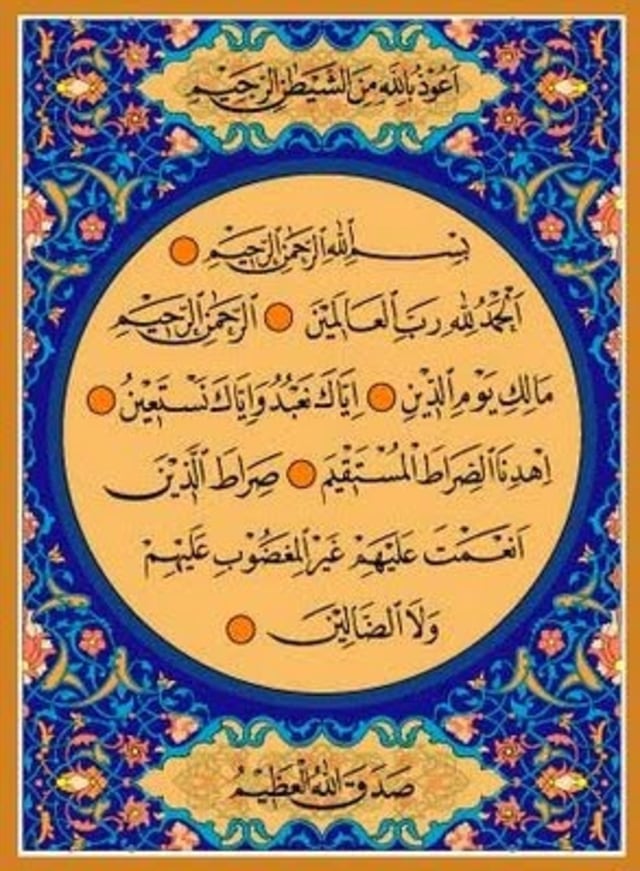 اَعُوذُ بِاللّٰهِ مِنَ الشَّيْطٰنِ الرَّجِيْمِ
بِسْمِ اللّٰهِ الرَّحْمٰنِ الرَّحِيْمِ
اَلْحَمْدُ لِلّٰهِ رَبِّ الْعَالَمِيْنَ الرَّحْمٰنِ الرَّحِيْمِ
مَالِكِ يَوْمِ الدِّيْنِ اِيَّاكَ نَعْبُدُ وَاِيَّاكَ نَسْتَعِيْنُ
اِهْدِنَا الصِّرَاطَ الْمُسْتَقِيْمَ صِرَاطَ الَّذِيْنَ
اَنْعَمْتَ عَلَيْهِمْ غَيْرِ الْمَغْضُوْبِ عَلَيْهِمْ
وَلَا الضَّالِّيْنَ
صَدَقَ اللّٰهُ الْعَظِيْمُ